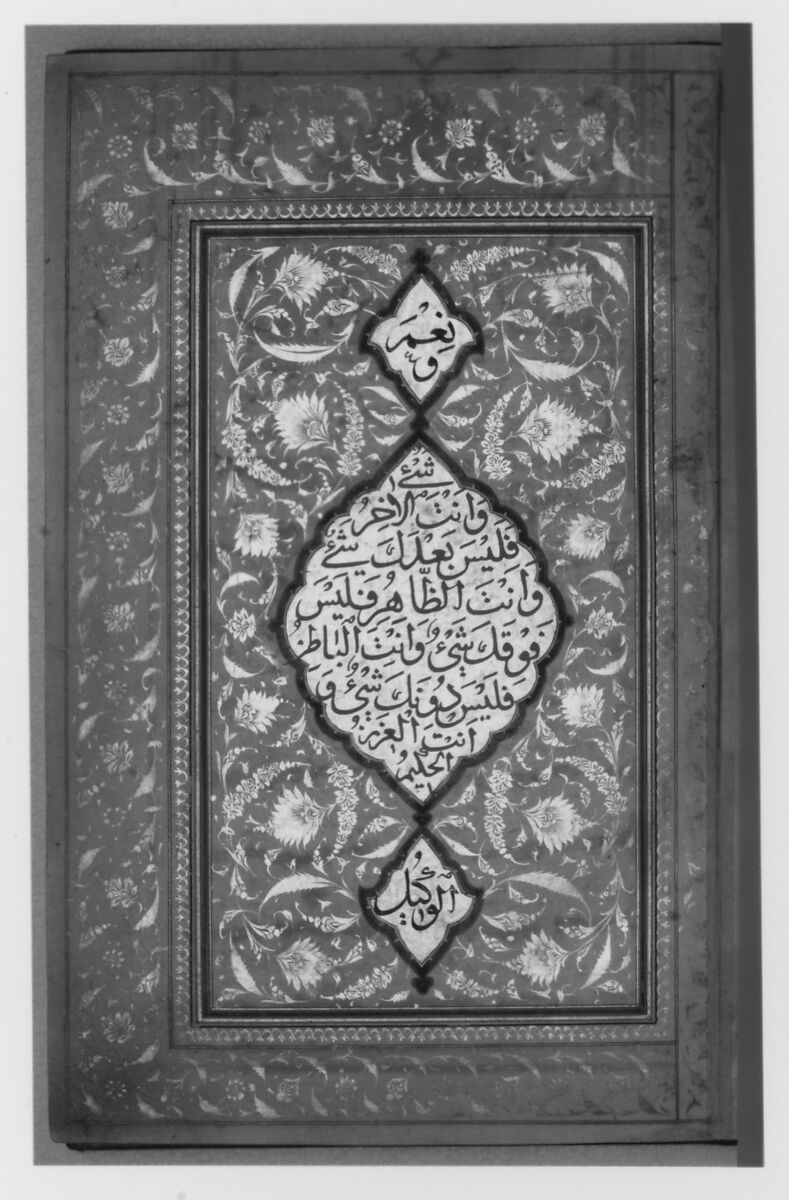 وَنِعْمَ
شَیْءٌ
وَاَنْتَ الْاٰخِرُ
فَلَیْسَ بَعْدَكَ شَیْءٌ
وَاَنْتَ الظَّاهِرُ فَلَیْسَ
فَوْقَكَ شَیْءٌ وَاَنْتَ الْبَاطِنُ
فَلَیْسَ دُوْنَكَ شَیْءٌ وَ
اَنْتَ الْعَزِیْزُ
الْحَكِیْمُ
الْوَكِیْلُ